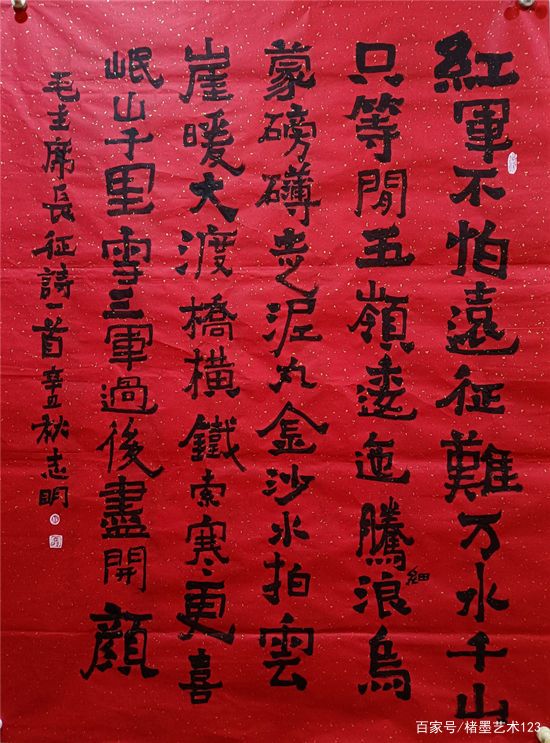 紅軍不怕遠征難万水千山
只等閒五嶺逶迤騰細浪烏
蒙磅礴走泥丸金沙水拍雲
崖暖大渡橋橫鐵索寒更喜
岷山千里雪三軍過後盡開顏
毛主席長征詩一首辛丑秋志明
百家号/楮墨艺术123